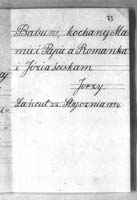 73
Babuni, kochany Ma
mie i Papie a Romanka
i Józia ściskam
Jerzy.
Łańcut 22 Stycznia 111.